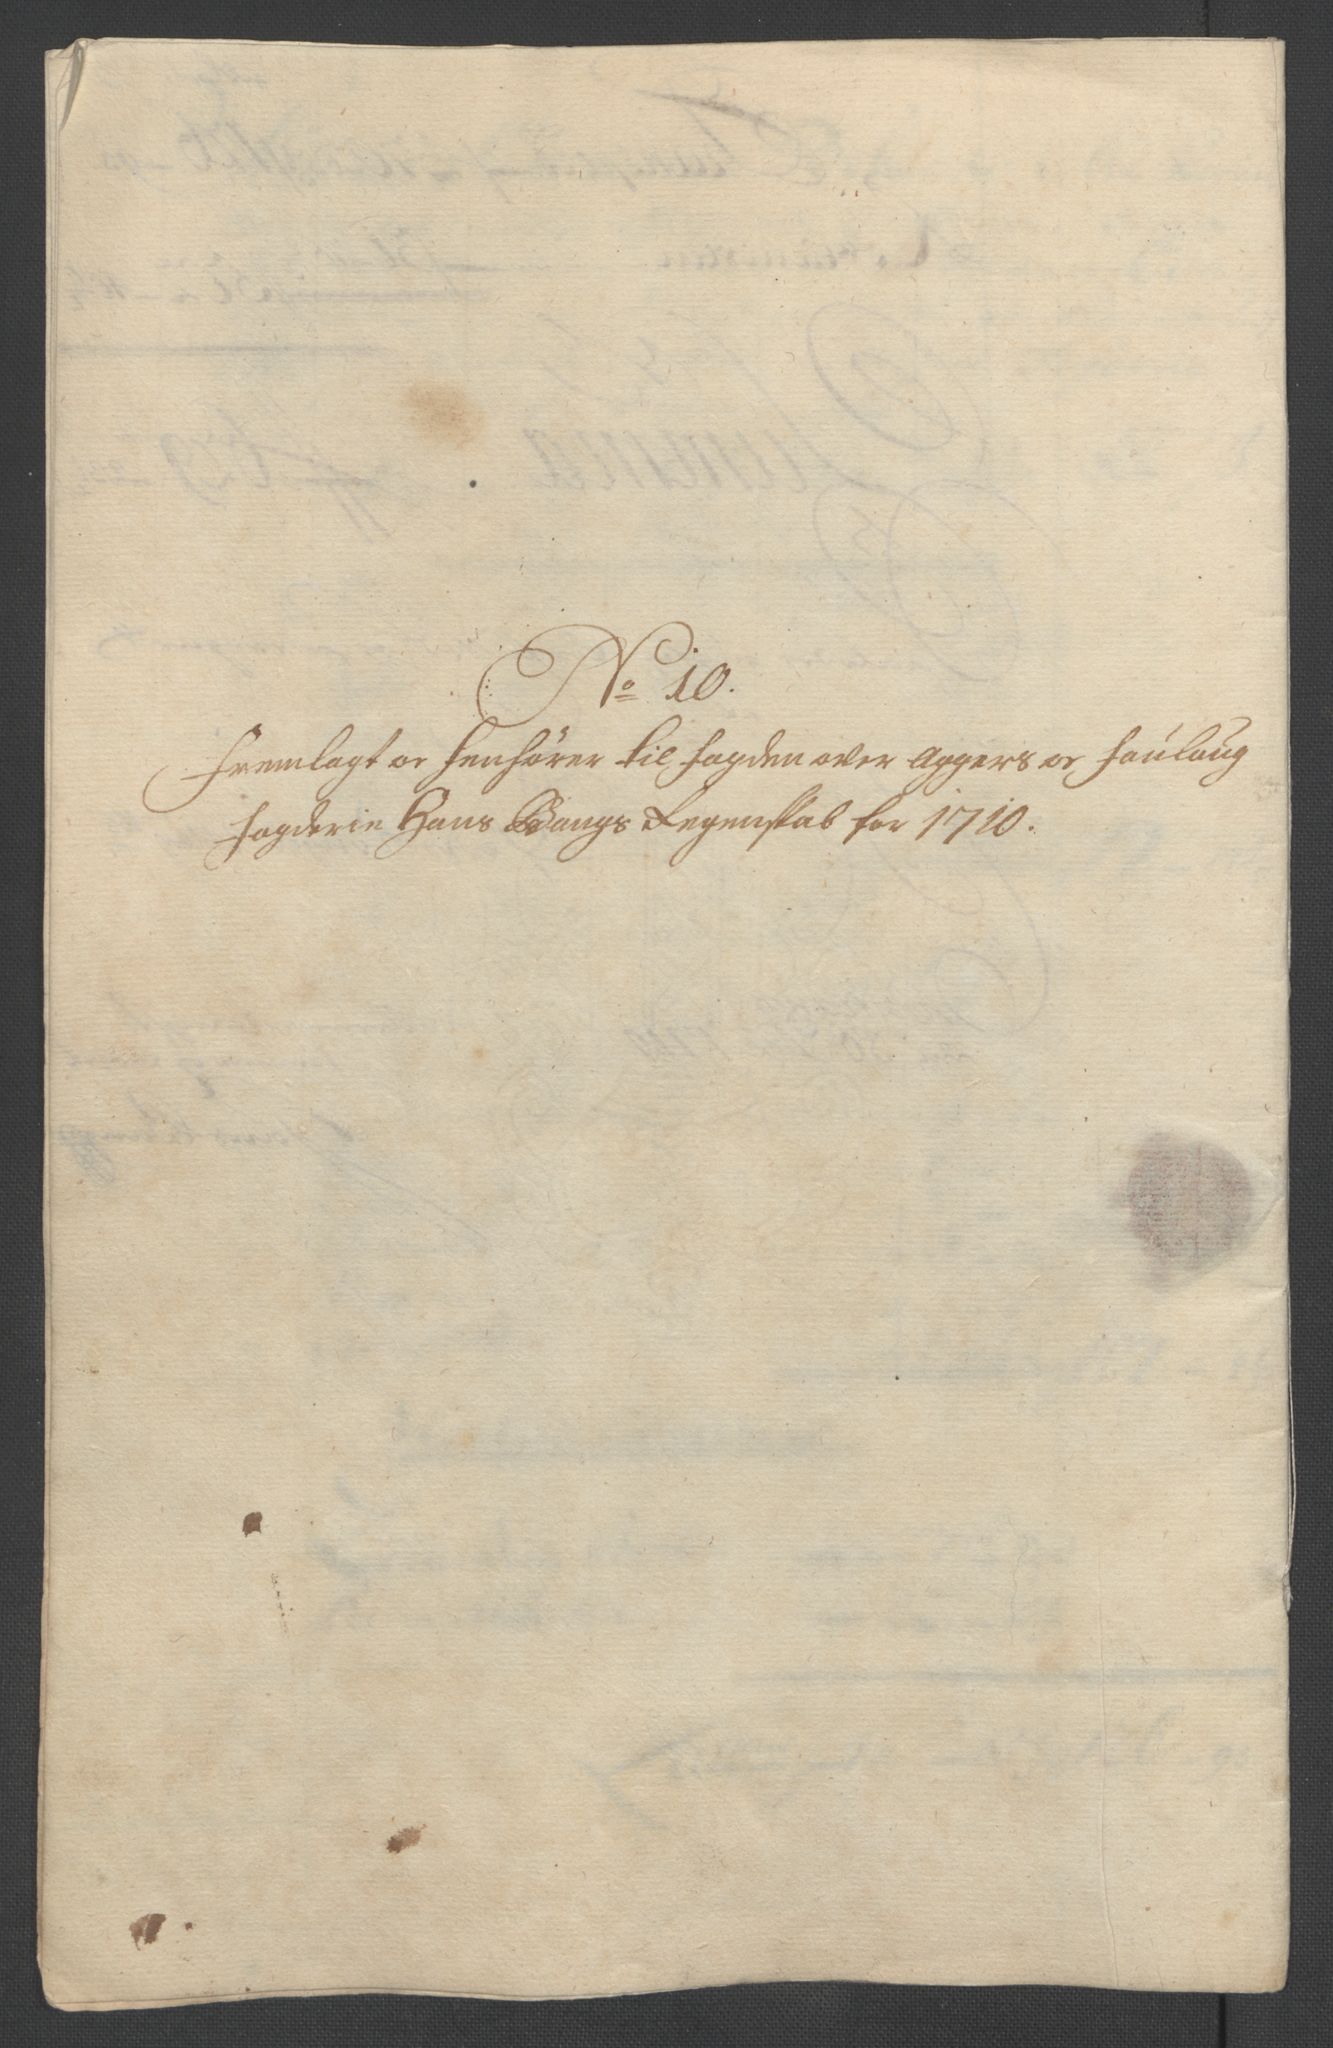 No 10.
Fremlagt oc henhörer til fogden over Aggers oc Fouloug
fogderie Hans Bangs Regenskab for 1710.